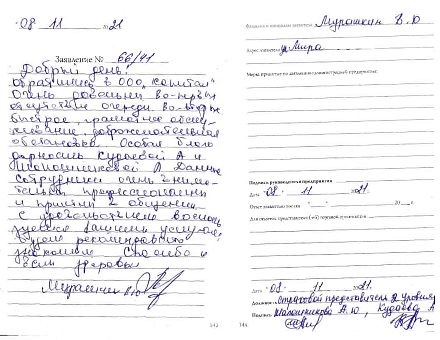 08 11 2021
Заявление № 66/41
Добрый день!
обратилась в ООО "Капитал"
Очень довольны во-первых
отсутствие очереди во-вторых
быстрое, грамотное обслу-
живание, доброжелательная
обстановка. Особая благо
дарность Кудаевой А и
Калашниковой А Данные
сотрудники очень внима-
тельны профессиональны
и приятны в общении.
с удовольствием восполь
зуемся вашими услугами,
будем рекомендовать
знакомым Спасибо и
всем здоровья
142
Фамилия и инициалы заявителя Мурашкин В.Ю
Адрес заявителя ул Мира
Меры, принятые по заявлению администрацией предприятия:
Подпись руководителя предприятия
Дата «08» 11 2021.
Ответ заявителю послан
Для отметок представителя (ей)
Дата «08» 11 2021.
Должность страховой представитель 2 уровня,
Подпись Калашникова А.Ю., Кудаева А
144